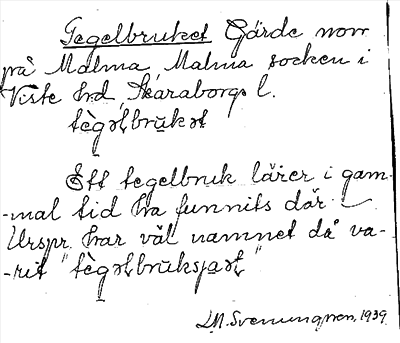 Tegelbruket Gärde norr
på Malma, Malma socken i
Viste hrd, Skaraborgs l.
tègəlbrukət
Ett tegelbruk lärer i gam-
-mal tid ha funnits där.
Urspr. har väl namnet då va-
-rit "tègəlbruksjaət"
L.M. Svenungsson, 1939